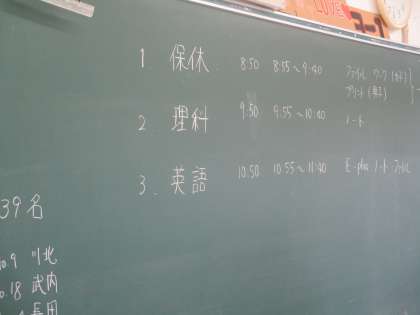 1 保体 8:50 8:55～9:40 ファイル ワーク
プリント
2. 理科 9:50 9:55～10:40 ノート
3. 英語 10:50 10:55～11:40 E-plus ノート ファイル
39名
No.9 川北
No.18 武内